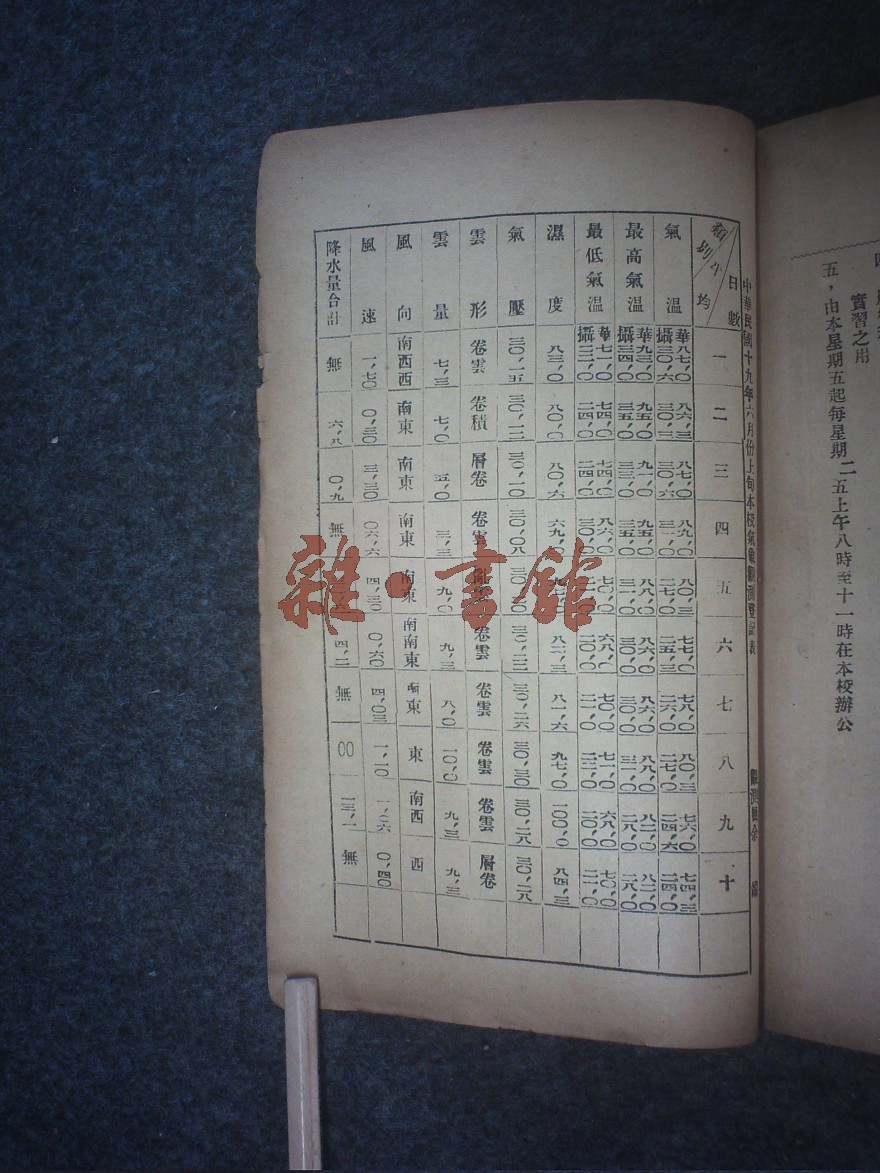 五，由本星期五起每星期二五上午八時至十一時在本校辦公
實習之用
中華民國十九年六月份上旬本校氣象觀測登記表
日數 一 二 三 四 五 六 七 八 九 十
氣溫 華 八七，〇 八六，三 八七，〇 八九，〇 八〇，三 七七，〇 七八，〇 八〇，三 七六，〇 七四，三
攝 三〇，六 三〇，三 三〇，六 三一，〇 二七，〇 二五，三 二六，〇 二七，〇 二四，六 二四，〇
最高氣溫 華 九三，〇 九五，〇 九一，〇 九五，〇 八八，〇 八六，〇 八六，〇 八八，〇 八二，〇 八二，〇
攝 三四，〇 三五，〇 三三，〇 三五，〇 三一，〇 三〇，〇 三〇，〇 三一，〇 二八，〇 二八，〇
最低氣溫 華 七一，〇 七四，〇 七四，〇 八六，〇 七〇，〇 六八，〇 七〇，〇 七一，〇 六八，〇 七〇，〇
攝 二四，〇 二四，〇 三〇，〇 二〇，〇 二一，〇 二〇，〇 二一，〇
濕度 八三，〇 八〇，〇 八〇，六 六九，〇 八二，三 八一，六 九七，〇 一〇〇，〇 八四，三
氣壓 三〇，一五 三〇，一二 三〇，一〇 三〇，〇八 三〇，二〇 三〇，二二 三〇，二六 三〇，三〇 三〇，二八 三〇，二八
雲形 卷雲 卷積 層卷 卷雲 卷雲 卷雲 卷雲 卷雲 層卷
雲量 七，三 七，〇 五，〇 三，三 九，〇 九，三 八，〇 一〇，〇 九，三 九，三
風向 南西西 南東 南東 南東 南東 南南東 南東 東 南西 西
風速 一，七〇 〇，三〇 三，三〇 〇六，六 四，三〇 〇，六〇 四，〇三 一，一〇 一，二六 〇，四〇
降水量合計 無 六，八 〇，九 無 四，二 無 〇〇 一三，一 無
雜·書館